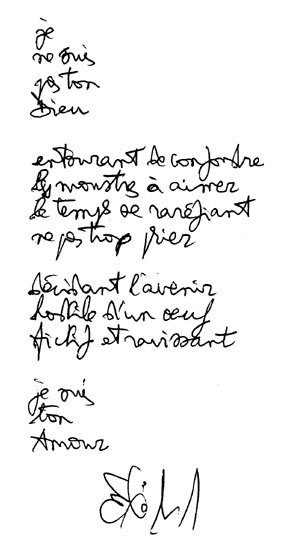 je
ne suis
pas ton
Dieu
entourant de confondre
les monstres à aimer
le temps se raréfiant
ne pas trop prier
décidant l'avenir
hostile d'un œuf
fictif et ravissant
je suis
ton
Amour